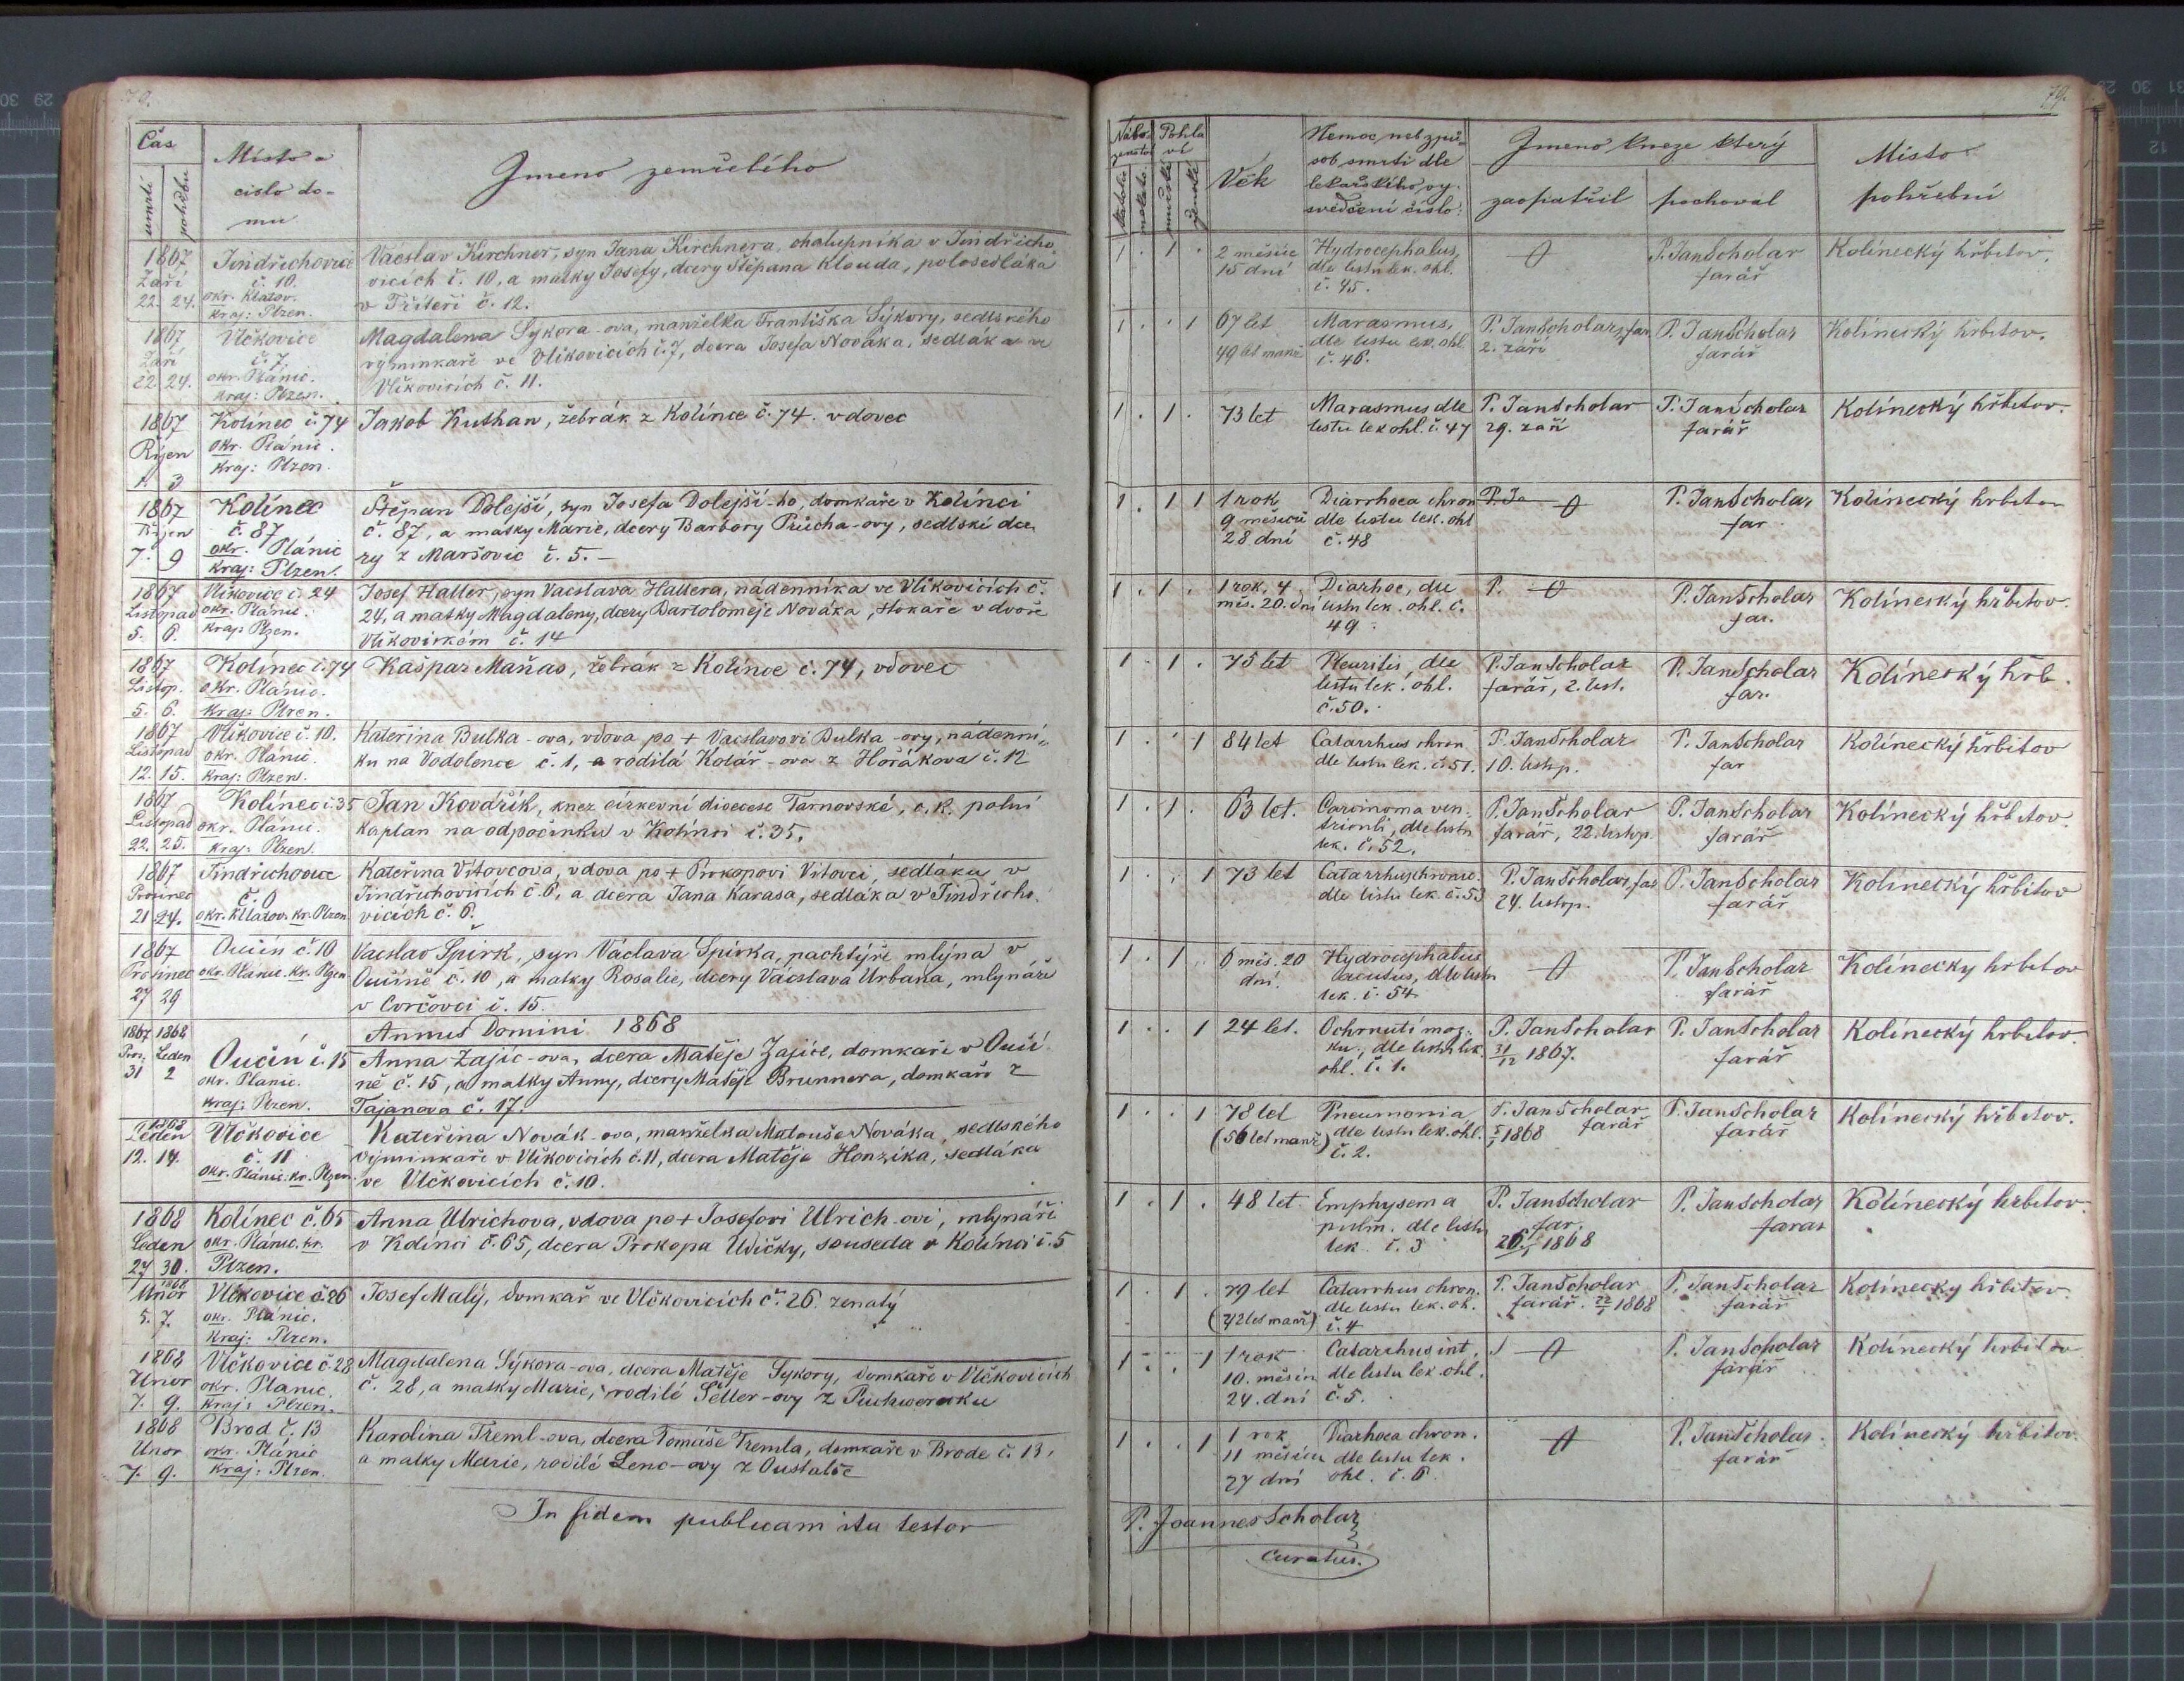 79.
79.
Čas
Místo a
číslo do-
mu
Jmeno zemřelého
umrtí
pohřbu
Nábo-
ženství
Pohla
ví
Věk
Nemoc neb způ-
sob smrti dle
lekařského vy-
svědčení číslo:
Jmeno kneze který
zaopatřil
pochoval
Misto
pohřební
mužské
ženské
1867
Září
22. 24.
Jindřichovice
č. 10.
okr. Klatov.
kraj: Plzen.
Václav Kirchner, syn Jana Kirchnera, chalupníka v Jindřicho
vicích č. 10, a matky Josefy, dcery Štěpana Klouda, polosedláka
v Tržiteři č. 12.
1 . 1 .
2 měsíce
15 dní
Hydrocephalus,
dle listu lek. ohl.
č. 45.
P. Jan Scholar
farář
Kolínecký hřbitov.
1867
Září
22. 24.
Vlčkovice
č. 7.
okr. Plánic.
kraj: Plzen.
Magdalena Sykora-ova, manželka Františka Sýkory, sedlského
výminkaře ve Vlčkovicích č. 7, dcera Josefa Nováka, sedláka ve
Vlčkovicích č. 11.
1 . . 1
67 let
49 let manž
Marasmus,
dle listu lek. ohl.
č. 46.
P. Jan Scholar, far.
2. září
P. Jan Scholar
farář
Kolínecký hřbitov.
1867
Říjen
1. 3
Kolínec č. 74
okr. Plánic.
Kraj: Plzen.
Jakob Kuthan, žebrák z Kolínce č. 74. vdovec
1 . 1 .
73 let
Marasmus dle
listu lek ohl. č. 47
P. Jan Scholar
29. září
P. Jan Scholar
farář
Kolínecký hřbitov.
1867
Říjen
7. 9
Kolínec
č. 87
okr. Plánic
kraj: Plzen.
Štěpan Dolejší, syn Josefa Dolejší-ho, domkaře v Kolínci
č. 87, a matky Marie, dcery Barbory Průcha-ovy, sedlské dce
ry z Maršovic č. 5. -
1 . 1 1
1 rok
9 měsíců
28 dní
Diarrhoea chron
dle listu lek. ohl
č. 48
P. Ja
P. Jan Scholar
far.
Kolínecký hrbitov
1867
Listopad
5. 6.
Vlčkovice č. 24
okr. Plánic.
kraj: Plzen.
Josef Haller, syn Vacslava Hallera, nádenníka ve Vlčkovicích č.
24, a matky Magdaleny, dcery Bartoloměje Nováka, šlokaře v dvoře
Vlčkovickém č. 14
1 . 1 .
1 rok, 4
měs. 20. dní
Diarhoe, dle
listu lek. ohl. č.
49.
P.
P. Jan Scholar
far.
Kolínecký hřbitov.
1867
Listop.
5. 6.
Kolínec č. 74
okr. Plánic.
Kraj: Plzen.
Kašpar Maňas, žebrák z Kolínce č. 74, vdovec
1 . 1 .
75 let
Pleuritis, dle
listu lek. ohl.
č. 50.
P. Jan Scholar
farář, 2. list.
P. Jan Scholar
far.
Kolínecký hřb.
1867
Listopad
12. 15.
Vlčkovice č. 10.
okr. Plánic.
kraj: Plzen.
Kateřina Bulka-ova, vdova po + Vacslavovi Bulka-ovy, nádenní-
ku na Vodolence č. 1, a rodilá Kolář-ova z Hořákova č. 12
1 . . 1
84 let
Catarrhus chron
dle listu lek. č. 51.
P. Jan Scholar
10. listop.
P. Jan Scholar
far
Kolínecký hřbitov
1867
Listopad
22. 25.
Kolínec č. 35
okr. Plánic.
kraj: Plzen.
Jan Kovářík, knez církevní dioecese Tarnovské, c. k. polní
kaplan na odpočinku v Kolínci č. 35.
1 . 1 .
63 let.
Carcinoma ven-
triculi, dle listu
lek. č. 52.
P. Jan Scholar
farář, 22. listop.
P. Jan Scholar
farář
Kolínecký hřbitov.
1867
Prosinec
21 24.
Jindřichovice
č. 6
okr. Klatov. kr. Plzen
Kateřina Vítovcova, vdova po + Prokopovi Vítovci, sedláku v
Jindřichovicích č. 6, a dcera Jana Karasa, sedláka v Jindřicho-
vicích č. 6.
1 . . 1
73 let
Catarrhus chronic.
dle listu lek. č. 53
P. Jan Scholar, far
24. listop.
P. Jan Scholar
farář
Kolínecký hřbitov
1867
Prosinec
27 29
Oučín č. 10
okr. Plánic. kr. Plzen
Vacslav Špirk, syn Václava Špirka, pachtýře mlýna v
Oučíně č. 10, a matky Rosalie, dcery Vácslava Urbana, mlynáře
v Corčovci č. 15.
1 . 1 .
6 měs. 20
dní.
Hydrocephalus
acutus, dle listu
lek. č. 54
P. Jan Scholar
farář
Kolínecky hrbitov
Annus Domini 1868
1867 1868
Pros. Leden
31 2
Oučín č. 15
okr. Planic.
kraj: Plzen.
Anna Zajíc-ova, dcera Matěje Zajíce, domkaře v Oučí
ně č. 15, a matky Anny, dcery Matěje Brunnera, domkaře z
Tajanova č. 17.
1 . . 1
24 let.
Ochrnutí moz-
ku, dle listu lek.
ohl. č. 1.
P. Jan Scholar
31/12 1867.
P. Jan Scholar
farář
Kolínecký hrbitov.
1868
Leden
12. 14.
Vlčkovice
č. 11
okr. Plánic. kr. Plzen.
Kateřina Novák-ova, manželka Matouše Nováka, sedlského
výminkaře v Vlčkovicích č. 11, dcera Matěje Honzíka, sedláka
ve Vlčkovicích č. 10.
1 . . 1
78 let
(56 let manž)
Pneumonia
dle listu lek. ohl.
č. 2.
P. Jan Scholar
5/1 1868 farář
P. Jan Scholar
farář
Kolínecký hřbitov.
1868
Leden
27 30.
Kolínec č. 65
okr. Plánic. kr.
Plzen.
Anna Ulrichova, vdova po + Josefovi Ulrich-ovi, mlynáři
v Kolínci č. 65, dcera Prokopa Uličky, souseda v Kolínci č. 5
1 . 1 .
48 let
Emphysema
pulm. dle listu
lek. č. 3
P. Jan Scholar
far.
26/1 1868
P. Jan Scholar
faras
Kolínecký hrbitov.
1868
Únor
5. 7.
Vlčkovice č. 26
okr. Plánic.
Kraj: Plzen.
Josef Malý, domkař ve Vlčkovicích č. 26. zenatý
1 . 1 .
79 let
(42 let manž)
Catarrhus chron.
dle listu lek. oh.
č. 4
P. Jan Scholar
farář. 22/1 1868
P. Jan Scholar
farář
Kolínecky hřbitov
1868
Únor
7. 9.
Vlčkovice č. 28
okr. Planic.
Kraj: Plzen.
Magdalena Sýkora-ova, dcera Matěje Sykory, domkaře v Vlčkovicích
č. 28, a matky Marie, rodilé Šetler-ovy z
1 . . 1
1 rok
10. měsíců
24. dní
Catarrhus int.
dle listu lek ohl.
č. 5.
P. Jan Scholar
farář
Kolínecký hrbitov
1868
Unor
7. 9.
Brod č. 13
okr. Plánic
Kraj: Plzen.
Karolina Treml-ova, dcera Tomáše Tremla, domkaře v Brode č. 13,
a matky Marie, rodilé Lenc-ovy z Oustalče
1 . . 1
1 rok
11 měsíců
27 dní
Diarhoea chron.
dle listu lek.
ohl. č. 6.
P. Jan Scholar.
farář
Kolínecký hřbitov.
In fidem publicam ita testor
P. Joannes Scholar
curatus.